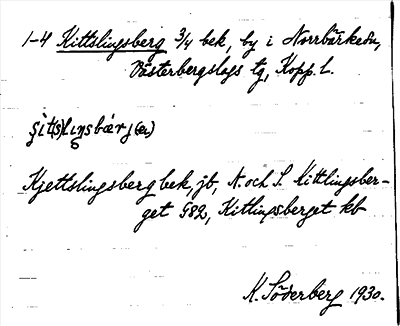 1-4 Kittslingsberg 3/4 bek, by i Norrbärkesn,
Västerbergslags tg, Kopp. l.
Kjettslingsberg bek, jb, N. och S. Kittlingsber-
get G82, Kitlingsberget kb
K. Söderberg 1930.